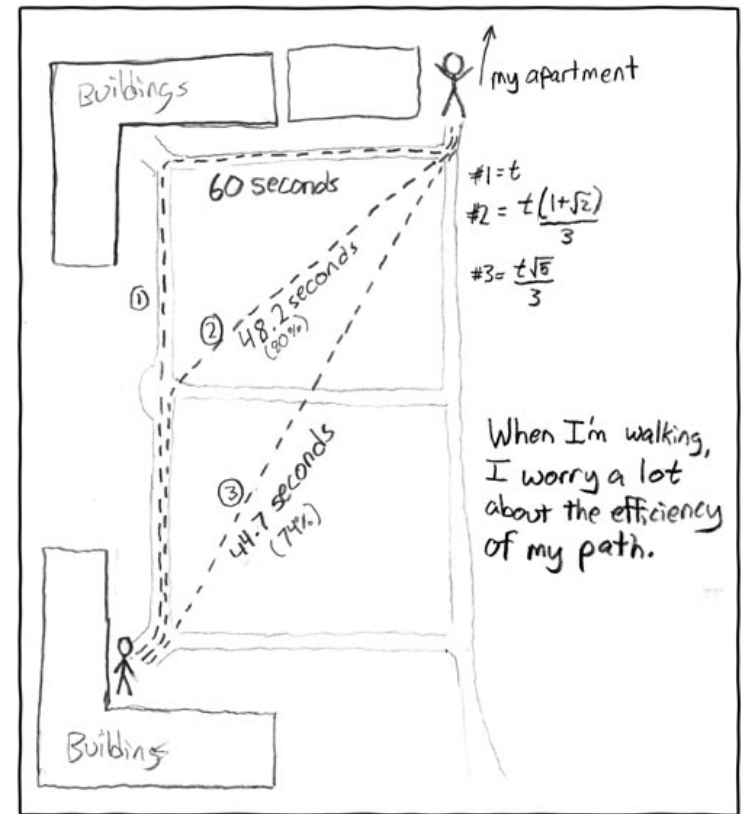 Buildings
my apartment
60 seconds
#1 = t
#2 = t(1+√2)
3
#3 = t√5
3
①
② 48.2 seconds
(80%)
③ 44.7 seconds
(74%)
When I'm walking,
I worry a lot
about the efficiency
of my path.
Buildings